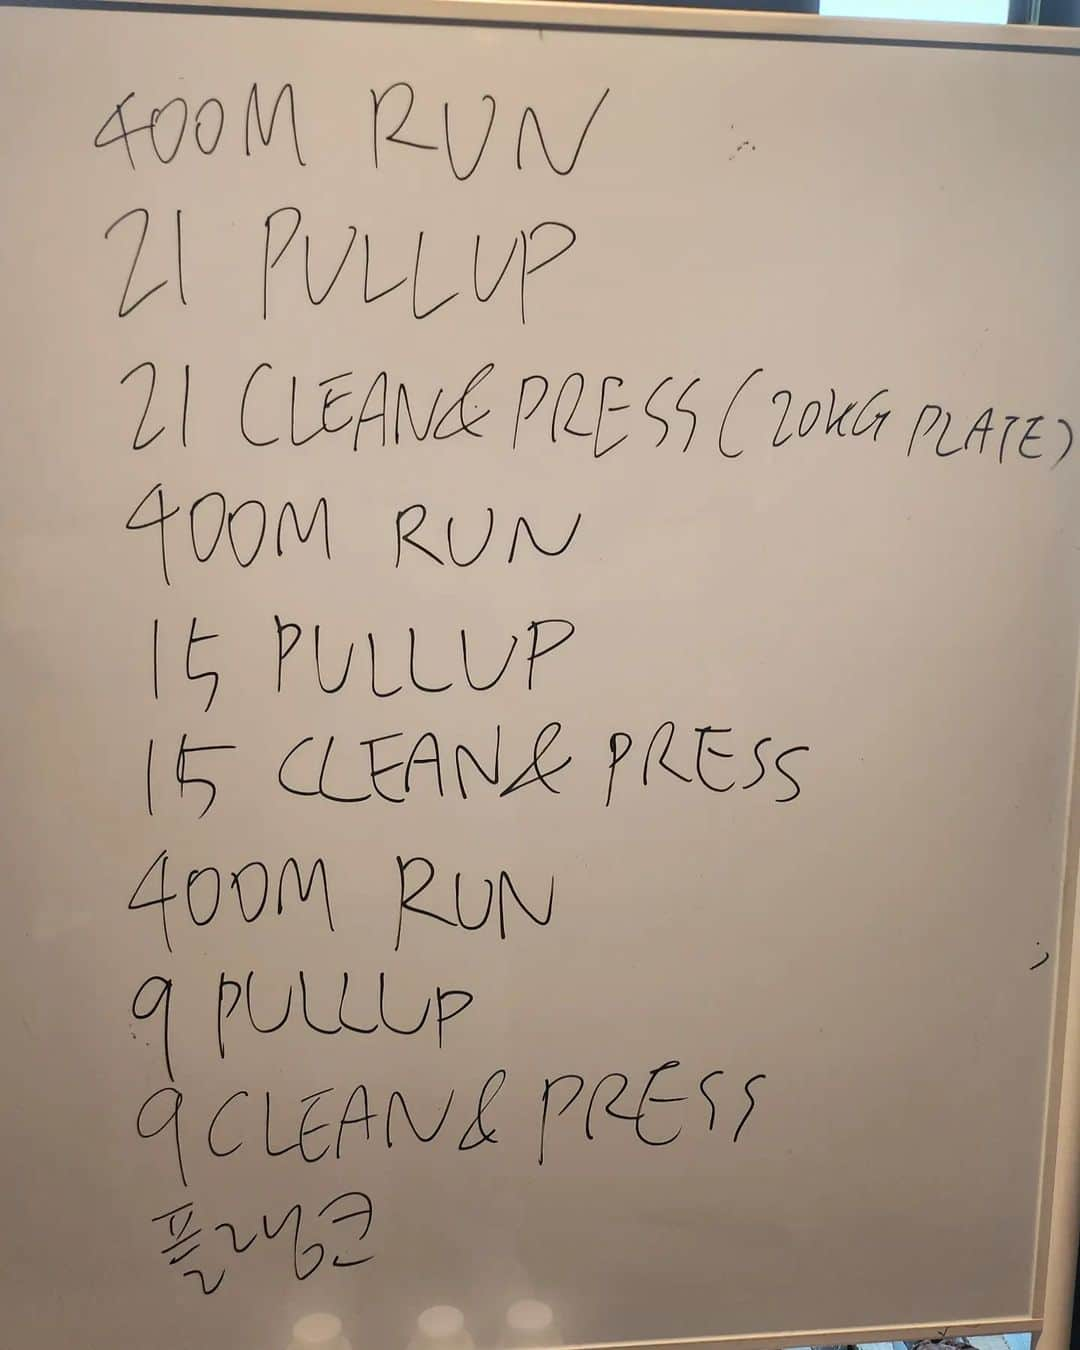 400M RUN
21 PULLUP
21 CLEAN& PRESS (20KG PLATE)
400M RUN
15 PULLUP
15 CLEAN& PRESS
400M RUN
9 PULLUP
9 CLEAN& PRESS
플랭크